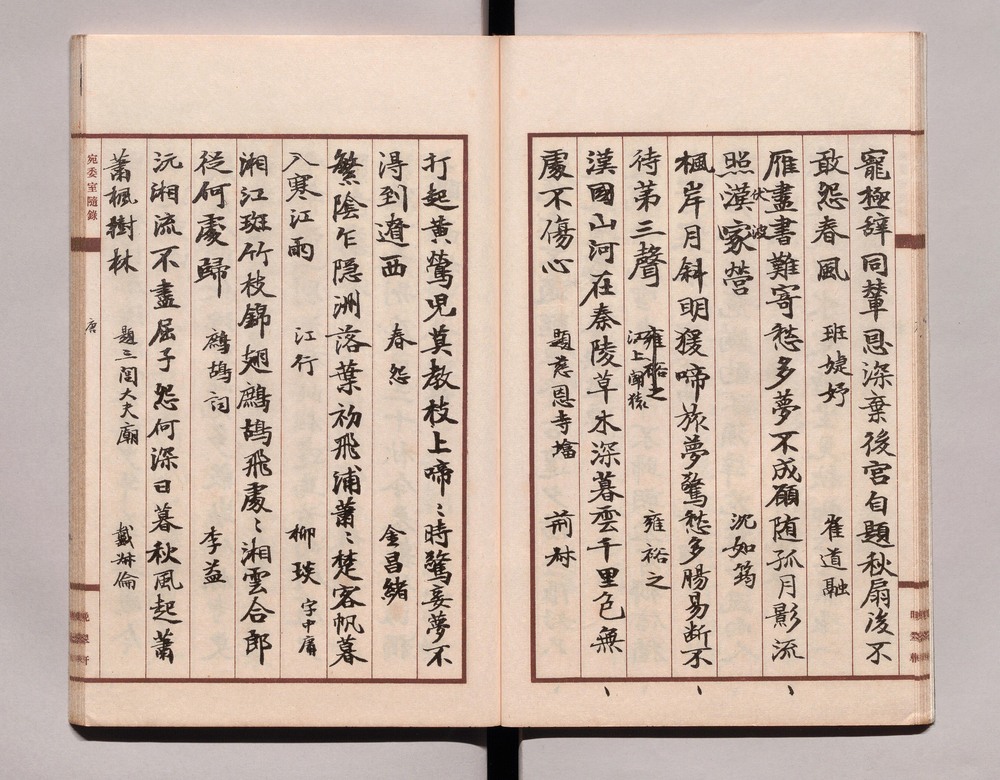 寵極辭同輦恩深棄後宮自題秋扇後不
敢怨春風 班婕妤 崔道融
雁盡書難寄愁多夢不成願随孤月影流
照漢家營 沈如筠
伏波
楓岸月斜明猨啼旅夢驚愁多腸易断不
待第三聲 雍裕之 雍裕之
江上聞猿
漢國山河在秦陵草木深暮雲千里色無
處不傷心 題慈恩寺塔 荊叔
打起黃鶯児莫教枝上啼〻時驚妾夢不
得到遼西 春怨 金昌緒
繁陰乍隠洲落葉初飛浦蕭〻楚客帆暮
入寒江雨 江行 柳琰 字中庸
湘江斑竹枝錦翅鷓鴣飛處〻湘雲合郎
從何處歸 鷓鴣詞 李益
沅湘流不盡屈子怨何深日暮秋風起蕭
蕭楓樹林 題三閭大夫廟 戴叔倫
宛委室隨錄
唐